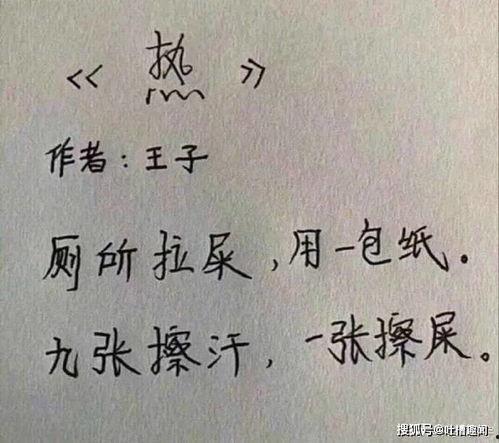 《热》
作者：王子
厕所拉屎，用一包纸。
九张擦汗，一张擦屎。
搜狐号@吐槽趣闻